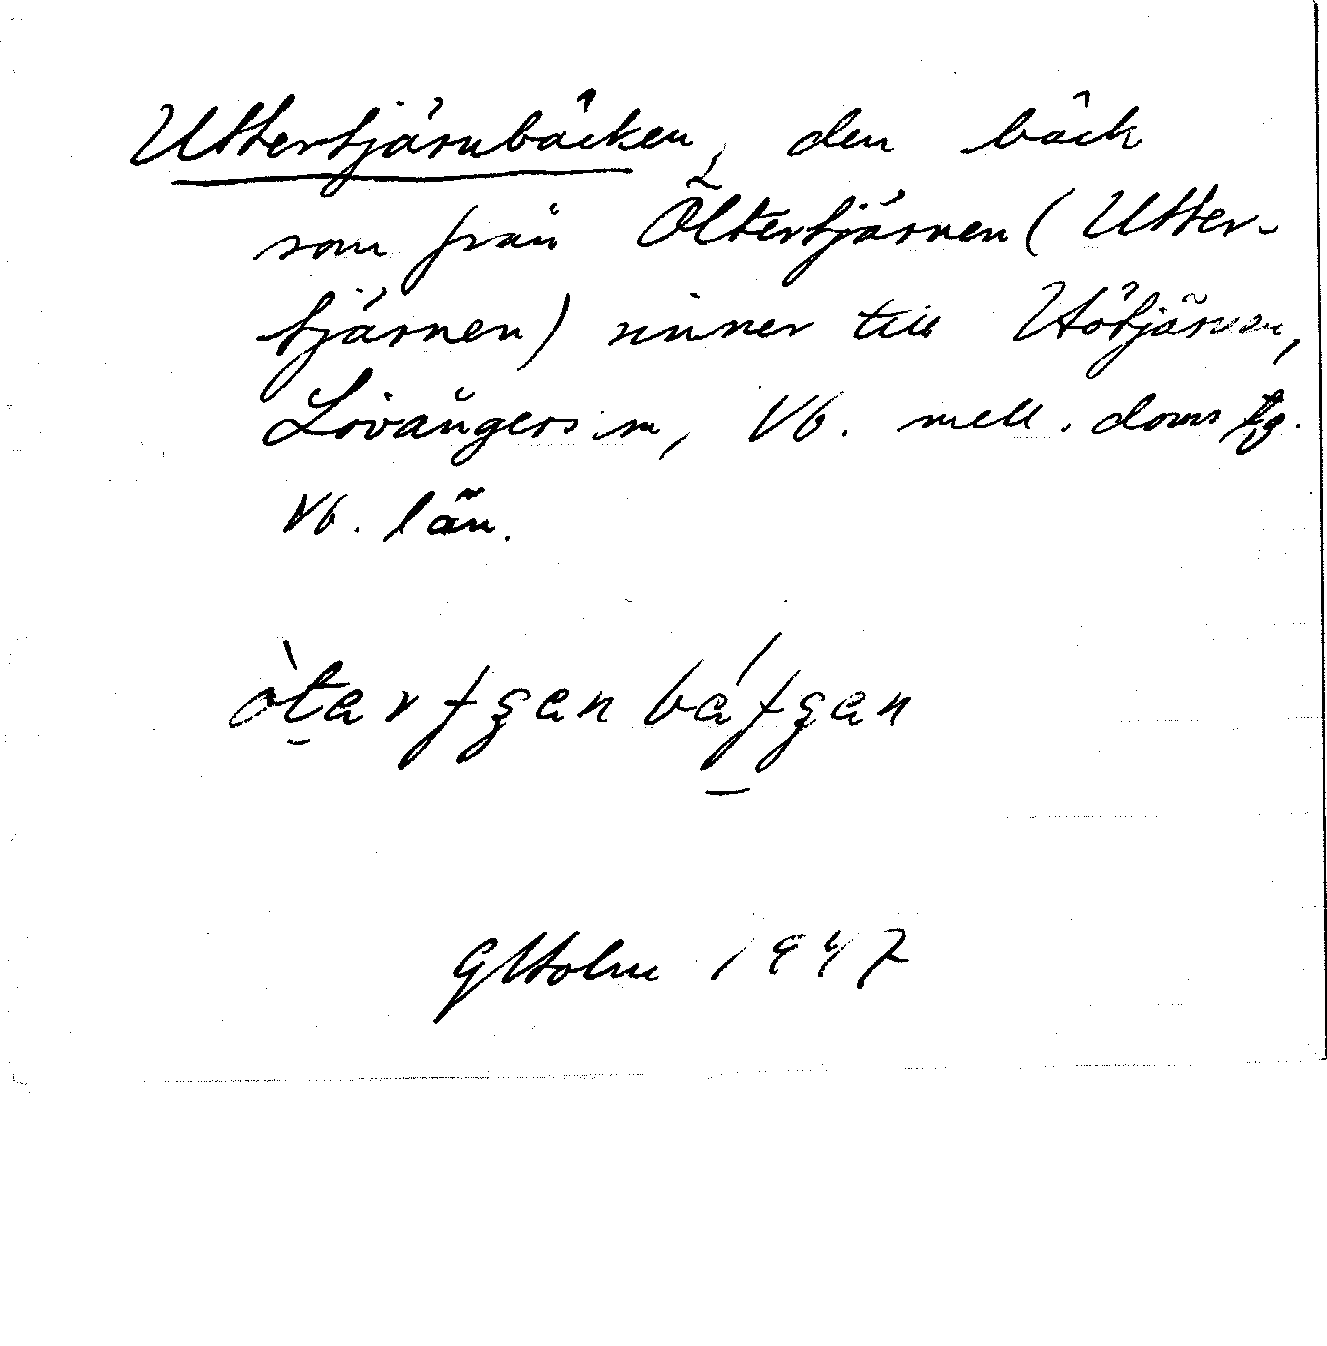 Uttertjärnbäcken, den bäck
som från Öltertjärnen (Utter-
tjärnen) rinner till Hötjärnen,
Lövångers sn, Vb. mell. doms tg.
Vb. län.
GHolm 1947